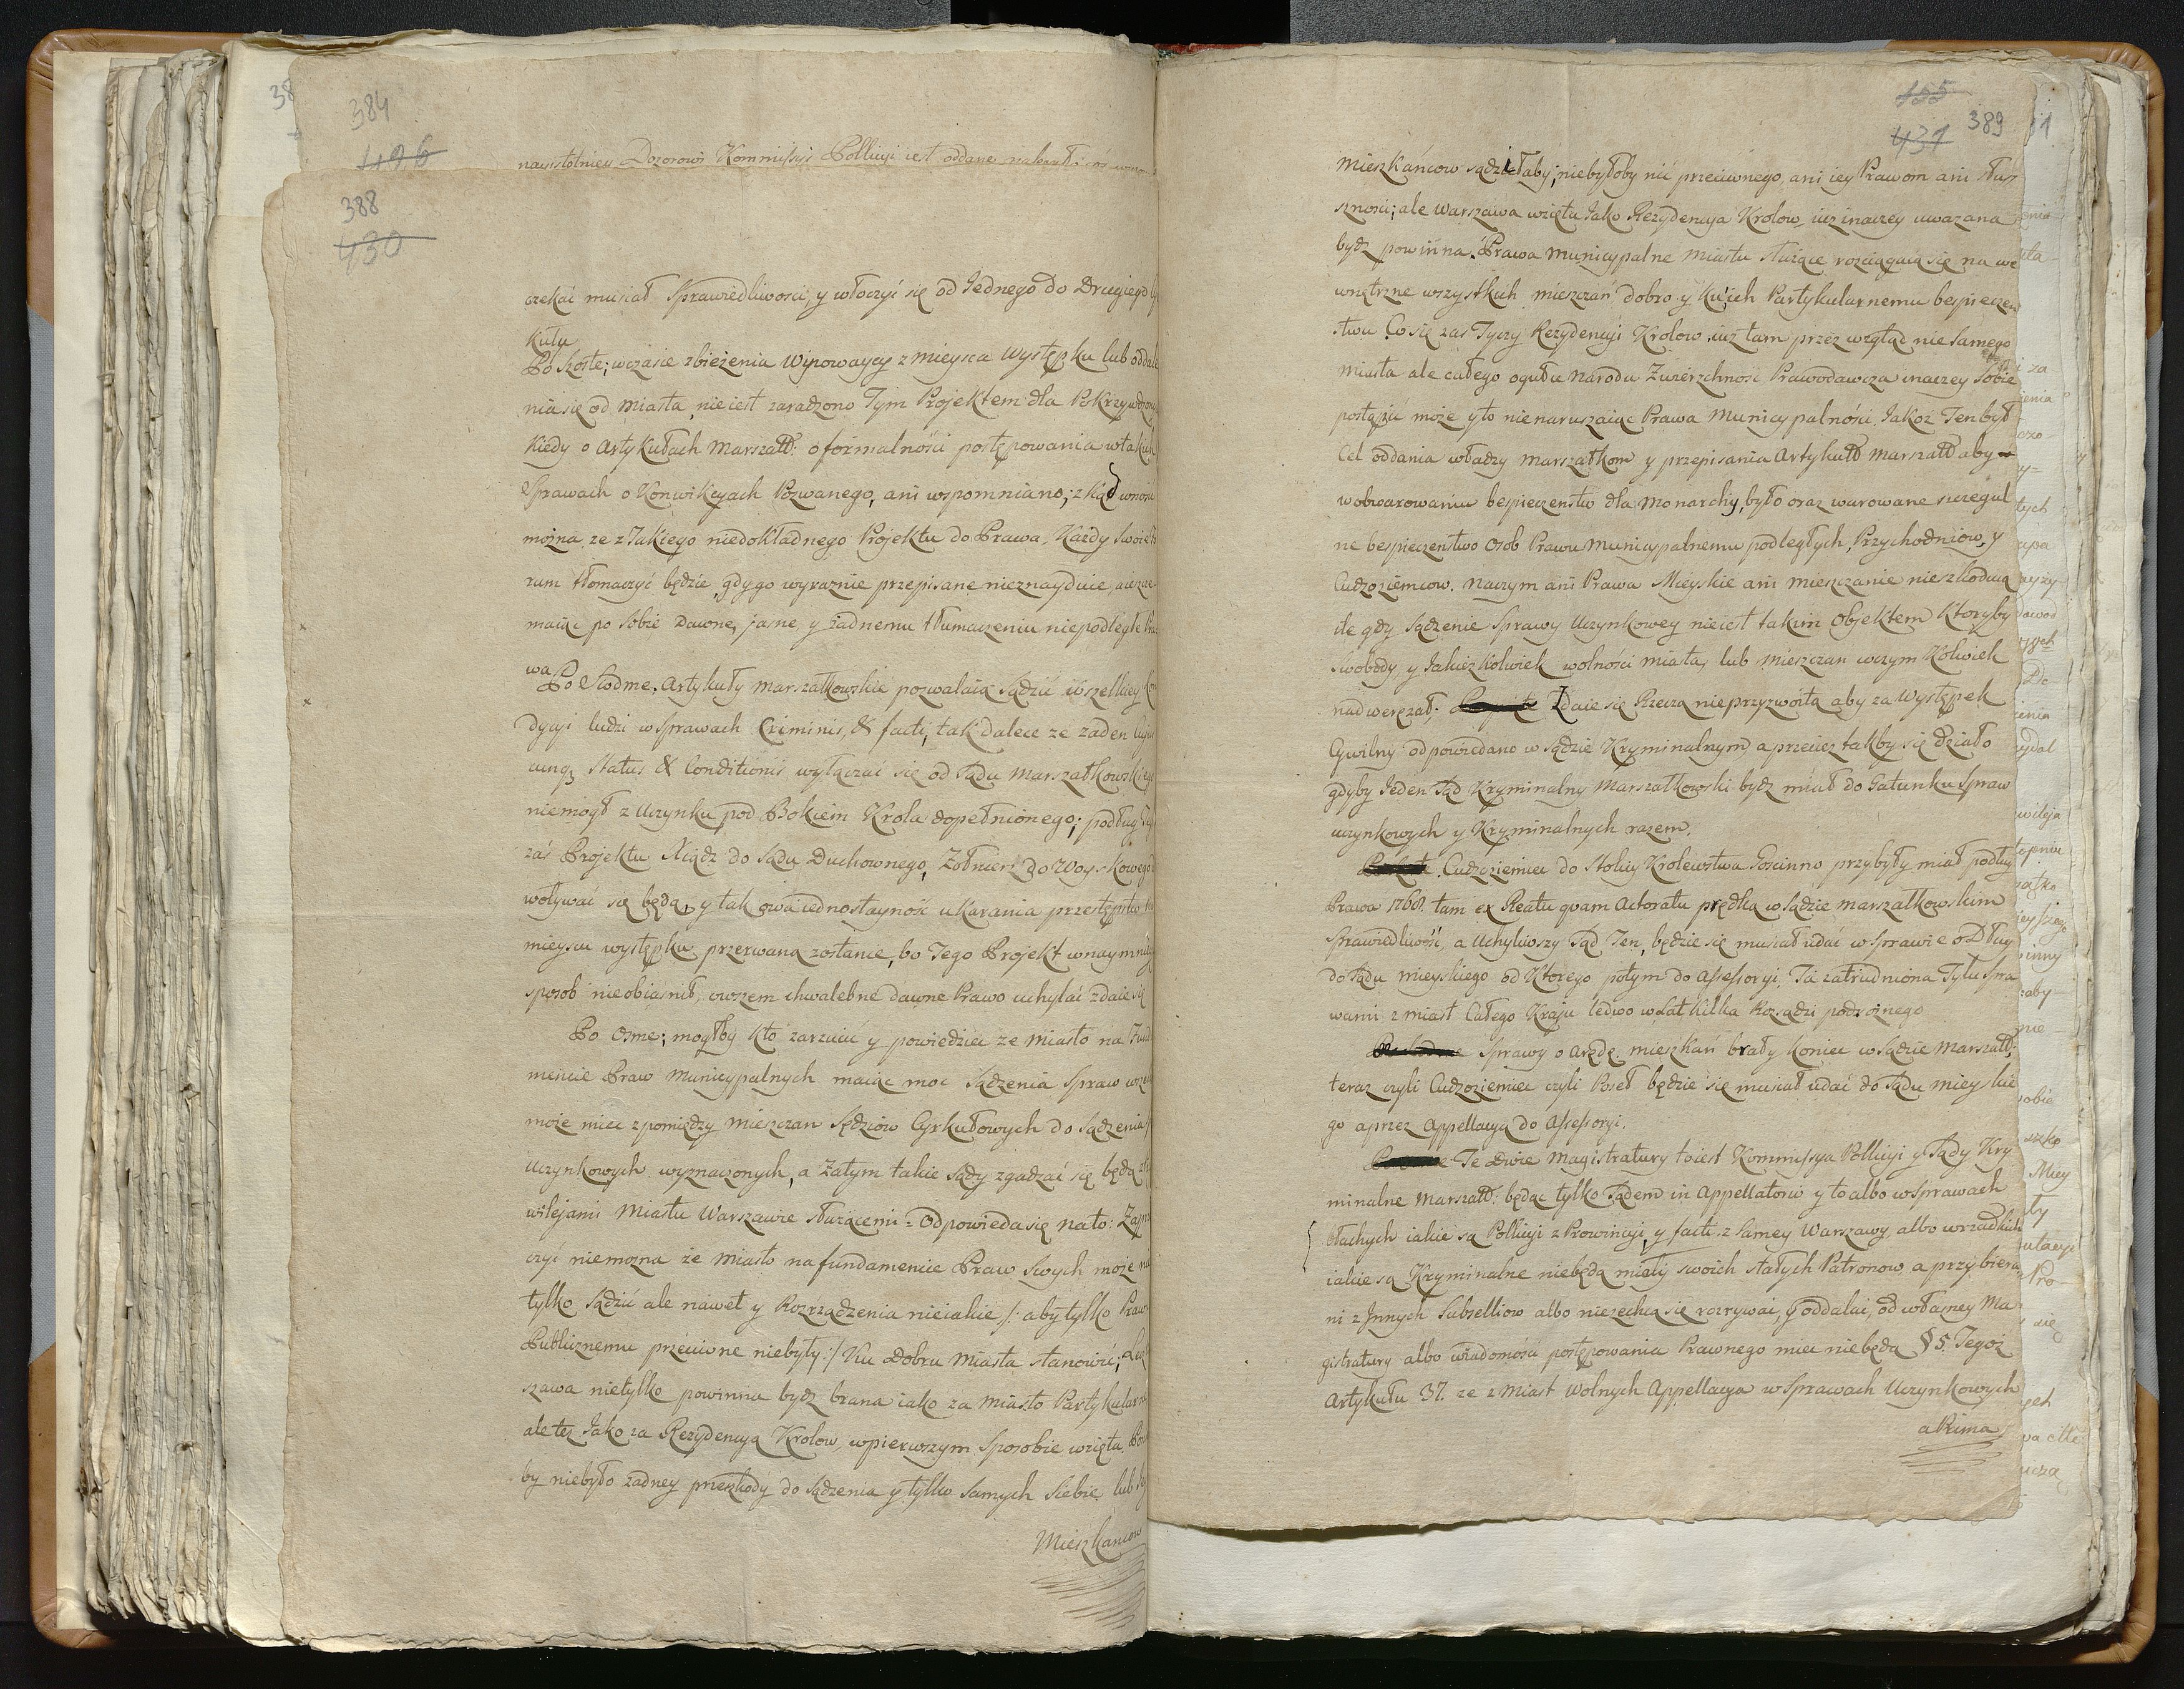 384
496
nayistotniey Dozorowi Kommissyi Policyi iest oddane
388
430
czekać musiał Sprawiedliwosci, y włoczyć się od Jednego do Drugiego
kułu
Po Szoste; wczasie zbieżenia Winowaycy z mieysca Występku lub oddale
nia się od Miasta, nie iest zaradzono Tym Projektem dla Pokrzywdzon
kiedy o Artykułach Marszałł: o formalności postępowania w takich
Sprawach o Konwikcyach Pozwanego, ani wspomniano; zkąd wnosić
można, ze z Takiego niedokładnego Projektu do Prawa, Każdy Swoie
rum tłomaczyć będzie, gdy go wyraznie przepisane nieznayduie,
maiąc po Sobie Dawne, jasne y żadnemu tłumaczeniu niepodległe Pra
wa
Po Siodme. Artykuły Marszałkowskie pozwalaią Sądzić wszelkiey Kon
dycyi ludzi w Sprawach Criminis, & facti, tak dalece ze zaden
cunq3 Status & Conditionis wyłączać się od Sądu Marszałkowskiego
niemogł z Uczynku pod Bokiem Krola dopełnionego; podług Teg
zaś Projektu Xiądz do Sądu Duchownego, Żołnierz do Woyskowego
wolywać się będą, y tak owa iednostayność ukarania przestępstw na
mieyscu występku, przerwana zostanie, bo Tego Projekt w naymniey
sposob nieobiasnił, owszem chwalebne dawne Prawo uchylać zdaie się
Po Osme; mogłby kto zarzucić y powiedzieć ze Miasto na Fund
mencie Praw Municypalnych maiąc moc Sądzenia Spraw
może mieć z pomiędzy Mieszczan Sędziow Cyrkułowych do Sądzenia
Uczynkowych wyznaczonych, a Zatym takie Sądy zgadzać się będą z
wilejami Miastu Warszawie służącemi = Odpowieda się na to: Zaprze
czyć niemożna że Miasto na fundamencie Praw Swych może nie
tylko Sądzić ale nawet y Rozrządzenia nieiakie /: aby tylko Praw
Publicznemu przeciwne niebyły :/ Ku Dobru Miasta stanowić;
szawa nietylko powinna bydz brana iako za Miasto Partykularne
ale tez Jako za Rezydencyą Krolow, w pierwszym Sposobie wzięta,
by niebyło żadney przeszkody do Sądzenia y tylko Samych Siebie lub
Mieszkancow
155
431
389
Mieszkańcow sądziłaby; niebyłoby nić przeciwnego, ani iey Prawom ani Słusz
szności; ale Warszawa wzięta Jako Rezydencya Krolow, iuz inaczey uwazana
bydz powinna. Prawa Municypalne Miastu służące rozciągaią się na we
wnętrzne wszystkich mieszczan dobro y Ku ich Partykularnemu bespieczeń
stwu Co się zas Tyczy Rezydencyi Krolow, iuz tam przez wzgląd nie Samego
miasta ale całego ogułu Narodu Zwierzchność Prawodawcza inaczey Sobie
postąpić może y to nienaruszaiąc Prawa Municypalności, Jakoz Ten był
Cel oddania władzy Marszałkom y przepisania Artykułł Marszałł aby
w obwarowaniu bespieczeństw dla Monarchy, było oraz warowane szczegul
ne bespieczenstwo Osob Prawu Municypalnemu podległych, Przychodniow, y
Cudzoziemcow. Naczym ani Prawa Mieyskie ani Mieszczanie nieszkoduią
ile gdy Sądzenie Sprawy Uczynkowey nieiest takim Objektem Ktoryby
Swobody y Jakieżkolwiek wolności miasta, lub Mieszczan wczym Kolwiek
nadwerężał; Zdaie się Rzeczą nieprzyzwoita aby za Występek
Cywilny odpowiedano w Sądzie Kryminalnym, a przeciez takby się działo
gdyby Jeden Sąd Kryminalny Marszałkowski bydz miał do Gatunku Spraw
uczynkowych y Kryminalnych razem.
Cudzoziemiec do Stolicy Krolewstwa Goscinno przybyły miał podług
Prawa 1768. tam ex Reatu quam Actoratu prędką w Sądzie Marszałkowskim
Sprawiedliwość, a Uchyliwszy Sąd Ten, będzie się musiał udać w Sprawie o Dług
do Sądu Mieyskiego od Ktorego potym do Assessoryi, Ta zatrudniona Tylu Spra
wami z miast Całego Kraju ledwo w Lat Kilka Rozsądzi podrożnego
Sprawy o Arędę mieszkań brały Koniec w Sądzie Marszałł:
teraz czyli Cudzoziemiec czyli Poseł będzie się musiał udać do Sądu Mieyskie
go a przez Appellacyą do Assessoryi.
Te Dwie Magistratury to iest Kommissya Policyi y Sądy Kry
minalne Marszałł: będąc tylko Sądem in Appellatorio y to albo w Sprawach
błachych iakie są Policyi z Prowincyi, y facti z Samey Warszawy, albo w rzadkich
iakie są Kryminalne niebędą mieli swoich stałych Patronow, a przybiera
ni z Jnnych Subselliow albo niezechcą się rozrywać, y oddalać, od własney Ma
gistratury albo wiadomości postępowania Prawnego mieć niebędą § 5. Tegoż
Artykułu 37. ze z Miast Wolnych Appellacya w Sprawach Uczynkowych
a Prima